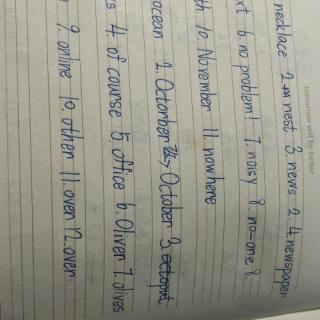 necklace 2. nest 3. news 4. newspaper
xt 6. no problem! 7. noisy 8. no-one 8.
th 10. November 11. nowhere
ocean 2. October 3.
s 4. of course 5. office 6. Oliver 7. olives
9. online 10. other 11. oven 12. over
tomorrow will be better